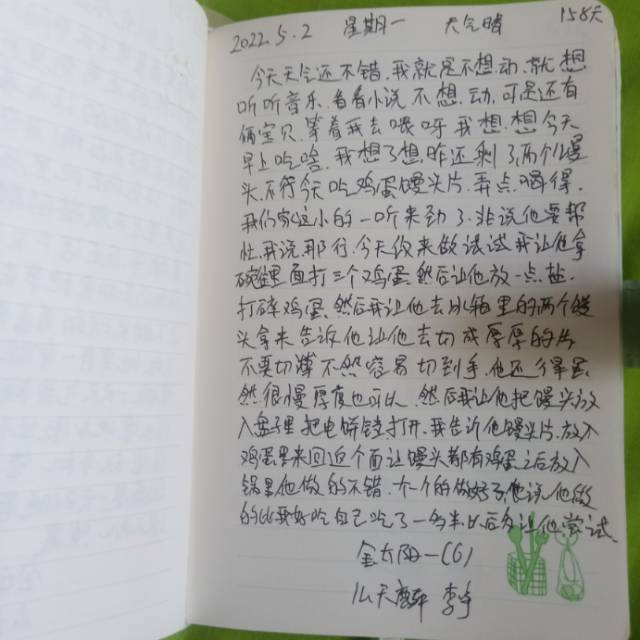 2022.5.2 星期一 天气晴 158天
今天天气还不错.我就是不想动,就想
听听音乐.看看小说不想.动,可是还有
俩宝贝.等着我去喂呀我想.想今天
早上吃啥.我想了想昨还剩了两个馒
头.不行今天吃鸡蛋馒头片.弄点喝得.
我们家这小的一听来劲了.非说他要帮
忙.我说那行.今天你来做试试我让他拿
碗里面打三个鸡蛋.然后让他放一点盐.
打碎鸡蛋.然后我让他去冰箱里的两个馒
头拿来告诉他让他去切成厚厚的片
不要切薄不然容易切到手.他还行虽
然.很慢厚度也可以.然后我让他把馒头放
入盘子里把电饼铛打开.我告诉他馒头片.放入
鸡蛋里来回近个面让馒头都有鸡蛋之后放入
锅里他做的不错.一个个的做好了他说他做
的比我好吃自己吃了一多半以后多让他尝试
金太阳一(6)
李